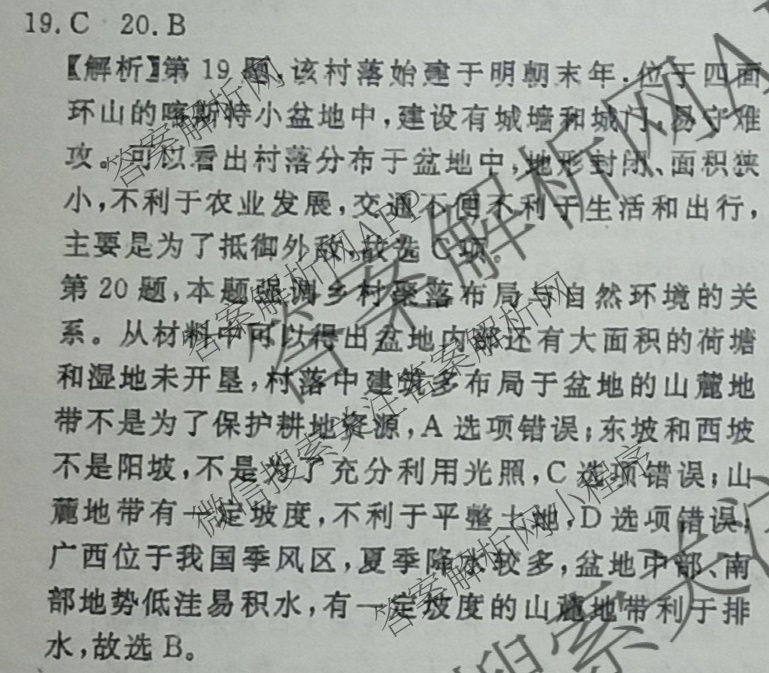 19.C 20.B
【解析】第19题,该村落始建于明朝末年,位于四面
环山的喀斯特小盆地中,建设有城墙和城门,易守难
攻。可以看出村落分布于盆地中,地形封闭、面积狭
小,不利于农业发展,交通不便不利于生活和出行,
主要是为了抵御外敌,故选C项。
第20题,本题强调乡村聚落布局与自然环境的关
系。从材料中可以得出盆地内部还有大面积的荷塘
和湿地未开垦,村落中建筑多布局于盆地的山麓地
带不是为了保护耕地资源,A选项错误;东坡和西坡
不是阳坡,不是为了充分利用光照,C选项错误;山
麓地带有一定坡度,不利于平整土地,D选项错误;
广西位于我国季风区,夏季降水较多,盆地中部、南
部地势低洼易积水,有一定坡度的山麓地带利于排
水,故选B。
答案解析网
答案解析网APP
答案解析网APP
微信搜索关注答案解析网
答案解析网小程序
搜索关注